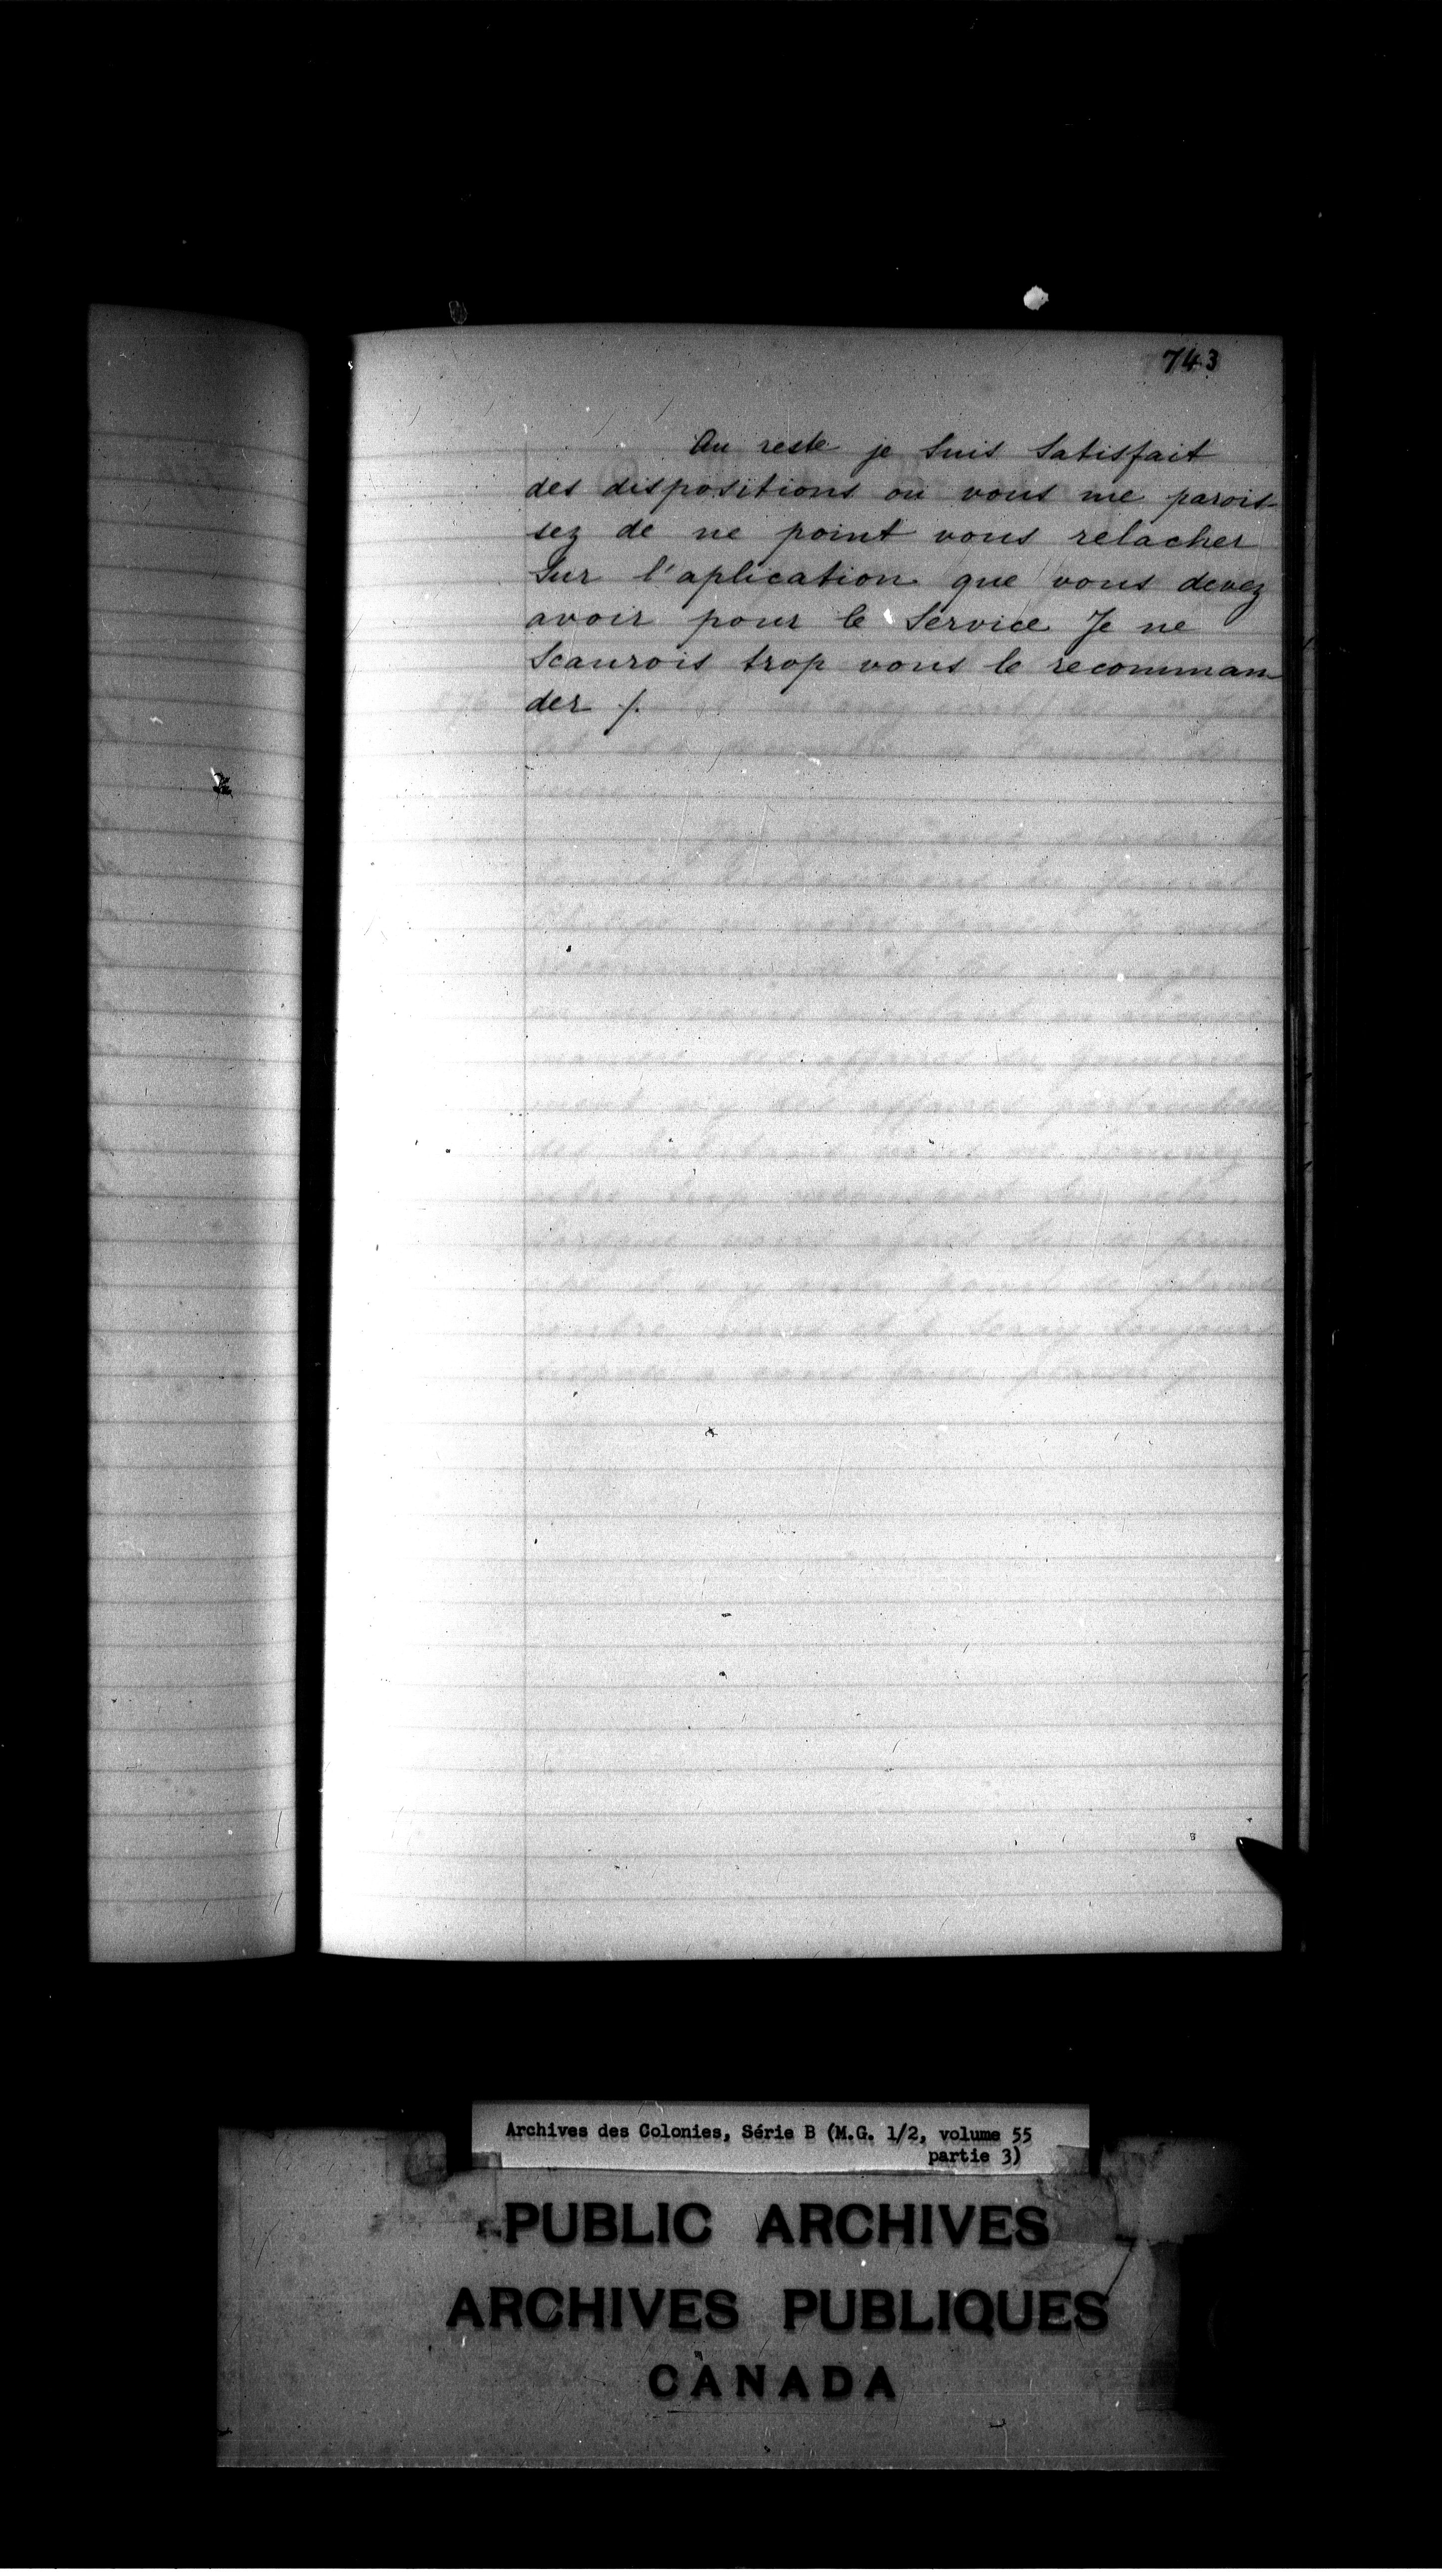 743
Au reste je suis satisfait
des dispositions ou vous me parois-
sez de ne point vous relacher
sur l'aplication que vous devez
avoir pour le service Je ne
scaurois trop vous le recomman
der /.
Archives des Colonies, Série B (M.G. 1/2, volume 55
partie 3)
PUBLIC ARCHIVES
ARCHIVES PUBLIQUES
CANADA